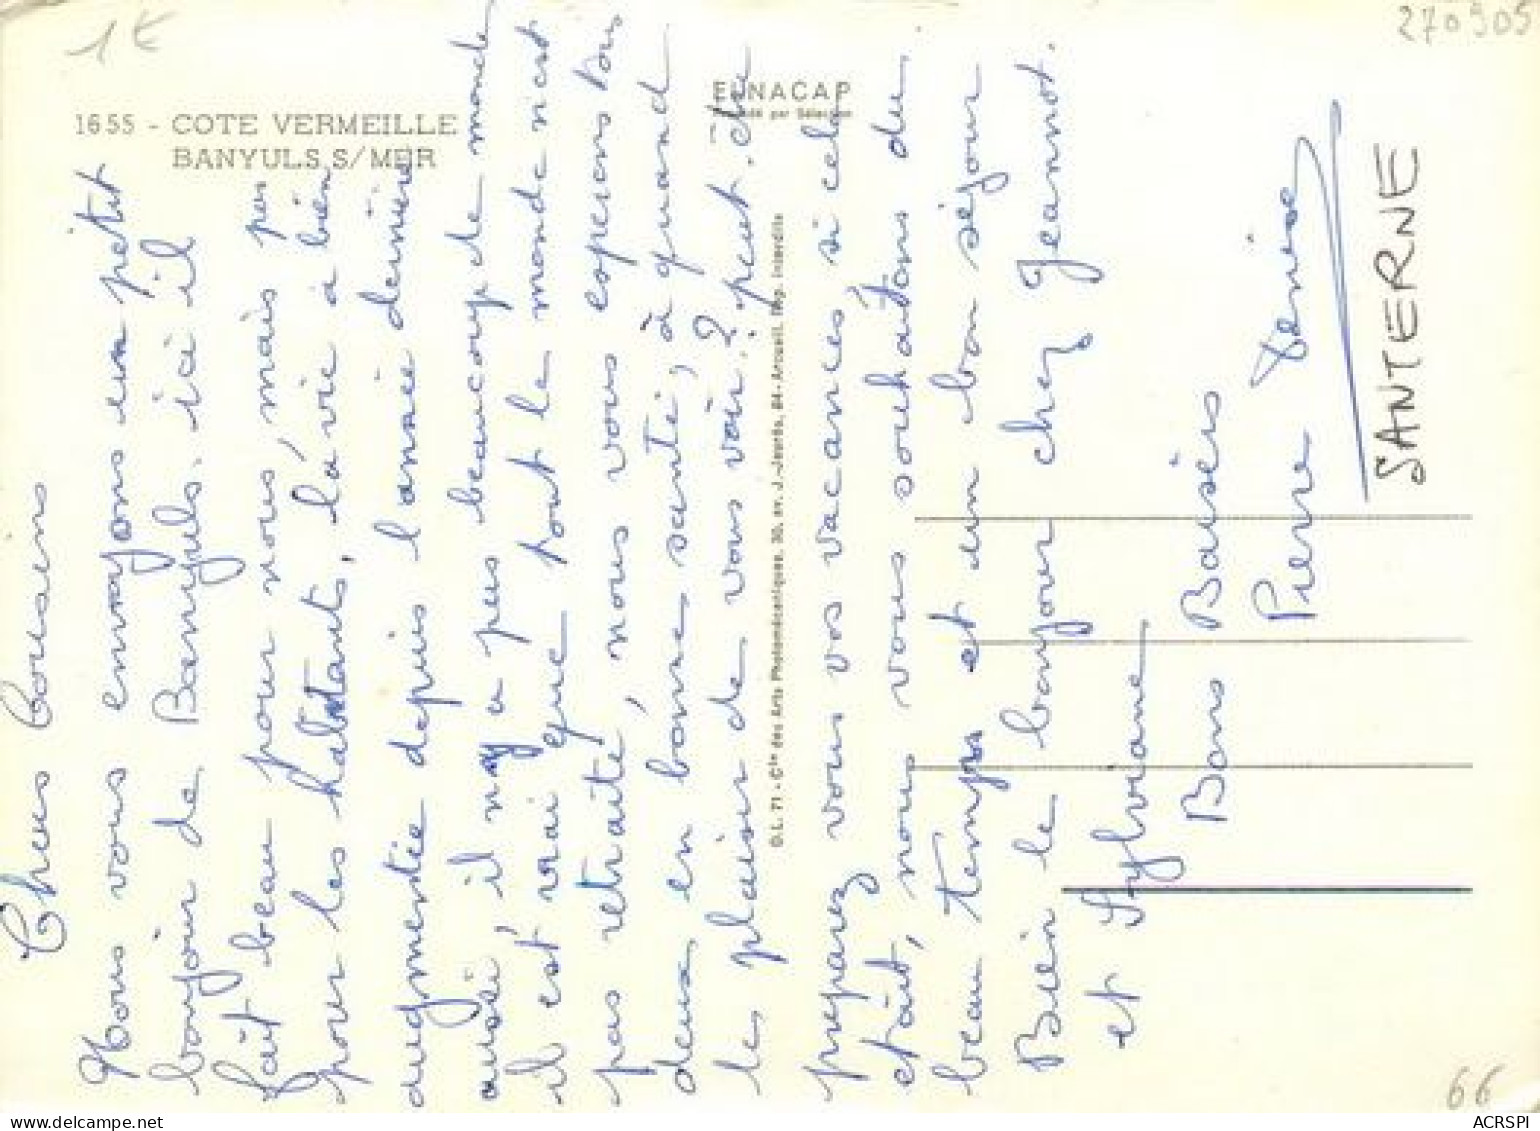 1 €
270905
1655 - COTE VERMEILLE
BANYULS S/MER
ELNACAP
D.L. 71 - Cie des Arts Photomécaniques, 30, av. J.-Jaurès, 94 - Arcueil. Rep. Interdite
Chers Cousins
Nous vous envoyons un petit
bonjour de Banyuls. ici il
fait beau pour nous, mais pas
pour les habitants, la vie à bien
augmentée depuis l'année dernière
aussi, il n'y a pas beaucoup de monde
il est vrai que tout le monde n'est
pas retraité, nous vous esperons tous
deux en bonne santé, à quand
le plaisir de vous voir ? peut-être
préparez vous vos vacances, si cela
était, nous vous souhaitons du
beau temps et un bon séjour
Bien le bonjour chez Jeannot.
et Sylviane
Bons Baisers
Pierre Denise
SANTERNE
66
ACRSPI